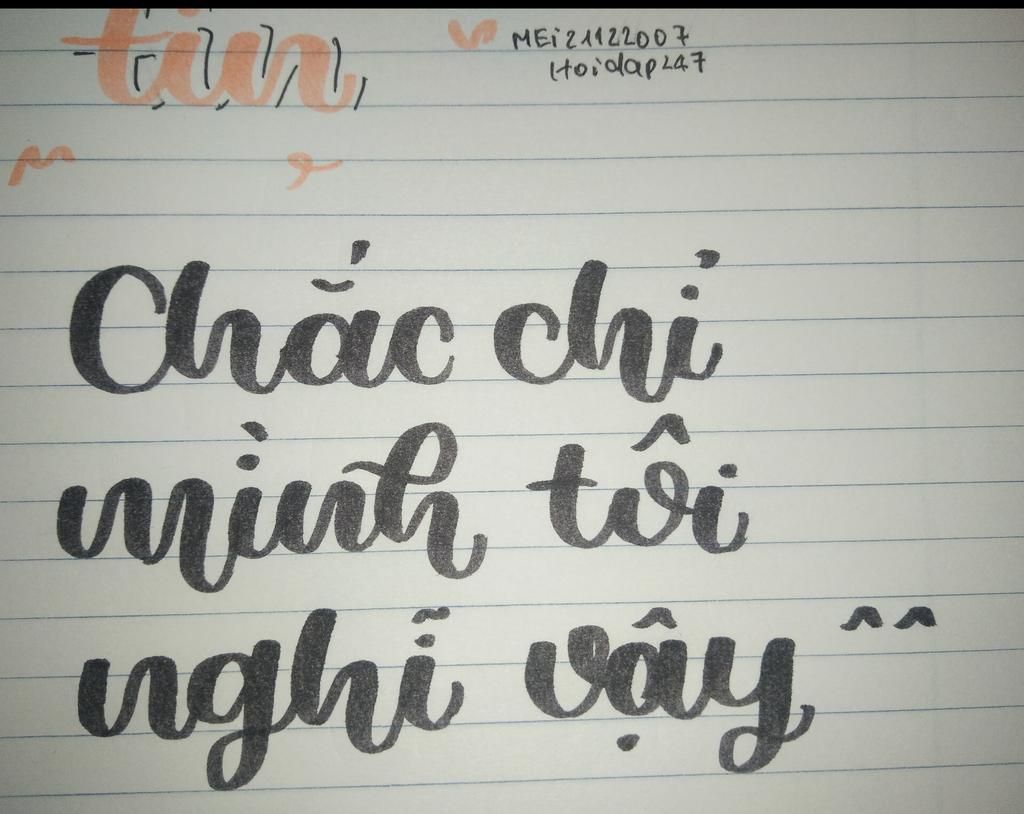 tin MEi21122007
Hoidap247
Chắc chỉ
mình tôi
nghĩ vậy ^^